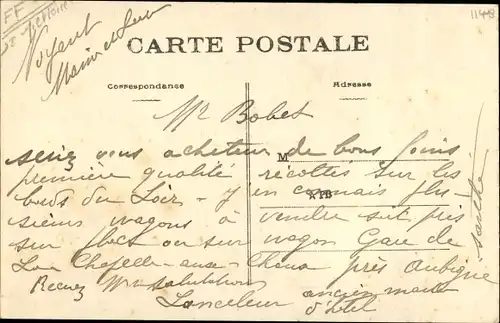 FF
Noyant
Maine et Loir
11448
CARTE POSTALE
Correspondance
Adresse
Mr Bobet
seriez vous acheteur de bons foins
M
première qualité récoltés sur les
bords du Loir - J'en connais plu-
XTB
sieurs wagons à vendre soit pris
sur place ou sur wagon Gare de
La Chapelle aux Choux près Aubigné
Sarthe
Recevez Mr salutations
Lanceleur ancien maitre
d'hotel